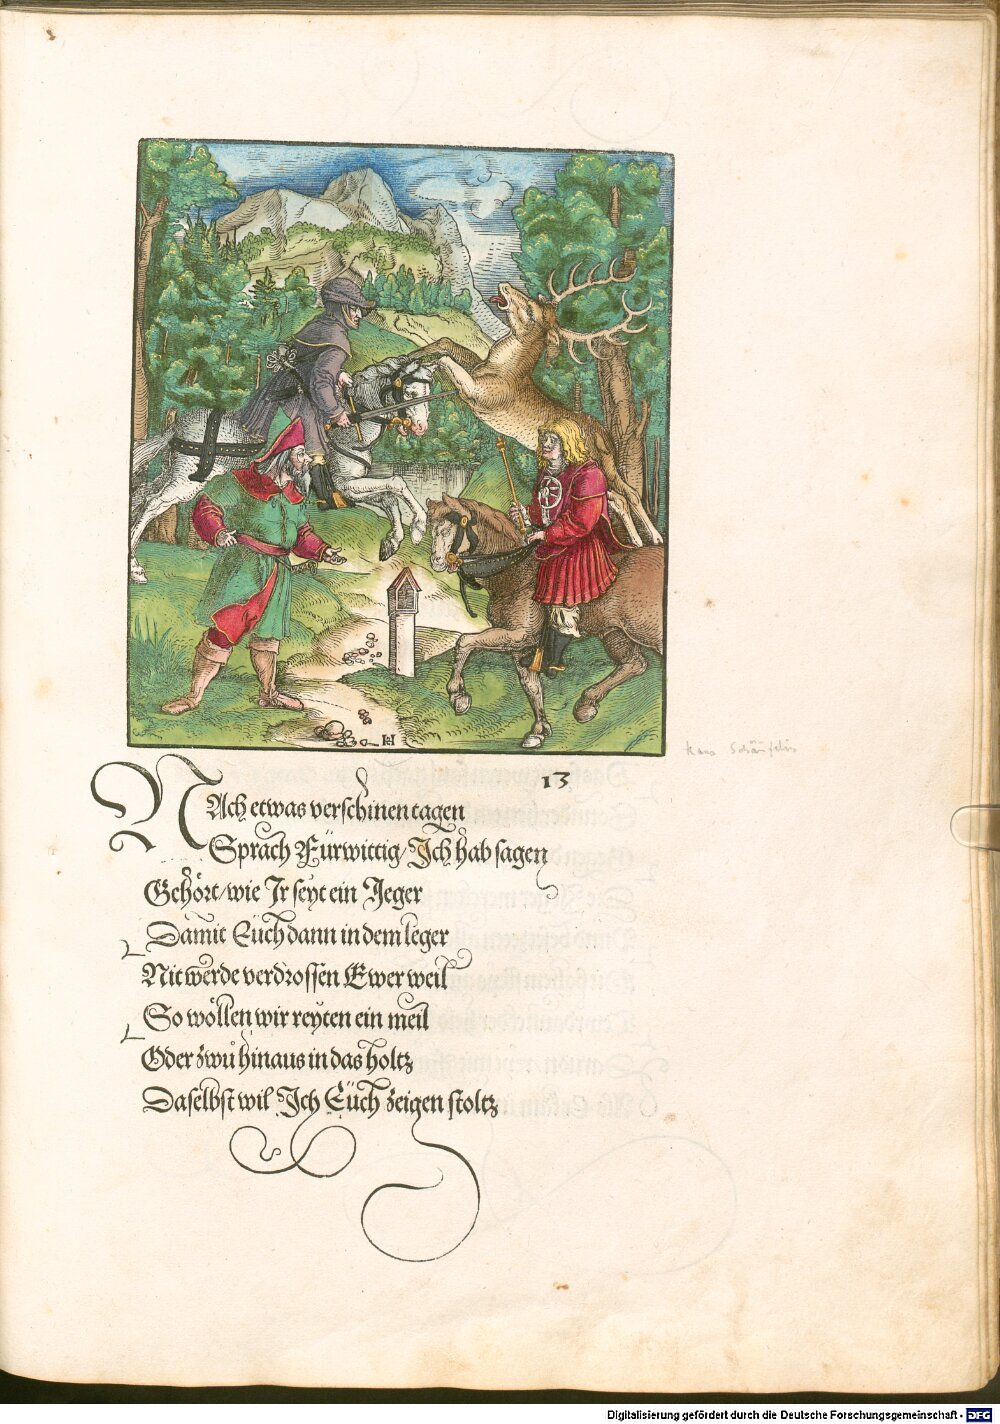 Hans Schäufelin
13
NAch etwas verschinen tagen
Sprach Fürwittig/Ich hab sagen
Gehört/wie Ir seyt ein Jeger
Damit Eüch dann in dem leger
Nit werde verdrossen Ewer weil
So wöllen wir reyten ein meil
Oder zwu hinaus in das holtz
Daselbst wil Ich Eüch zeigen stoltz
Digitalisierung gefördert durch die Deutsche Forschungsgemeinschaft - DFG